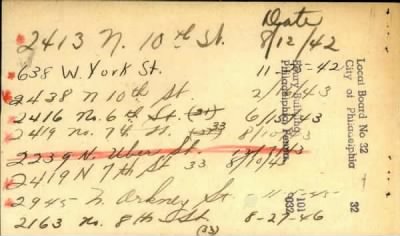 Date
2413 N. 10th St. 8/12/42
638 W. York St. 11 42
2438 N 10th St. 2/ /43
2416 No. 6th St. (31) 6/15/43
2419 No. 7th St. (33) 8/10/43
2239 N. Uber St.
2419 N 7th St 33 8/10/43
2945 N. Orkney St 11
2163 No. 8th St 8-27-46
(33)
Local Board No 32
City of Philadelphia
32
101